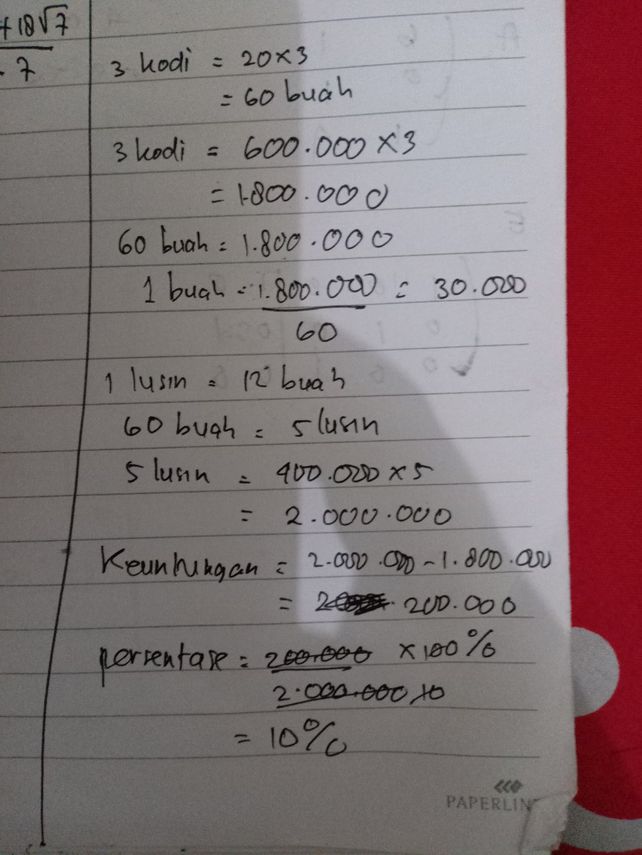 +18√7
7
3 kodi = 20×3
= 60 buah
3 kodi = 600.000 ×3
= 1.800.000
60 buah = 1.800.000
1 buah = 1.800.000 = 30.000
60
1 lusin = 12 buah
60 buah = 5 lusin
5 lusin = 400.000 × 5
= 2.000.000
Keuntungan = 2.000.000 - 1.800.000
= 200.000
persentase = 200.000 ×100%
2.000.000 10
= 10%
PAPERLIN